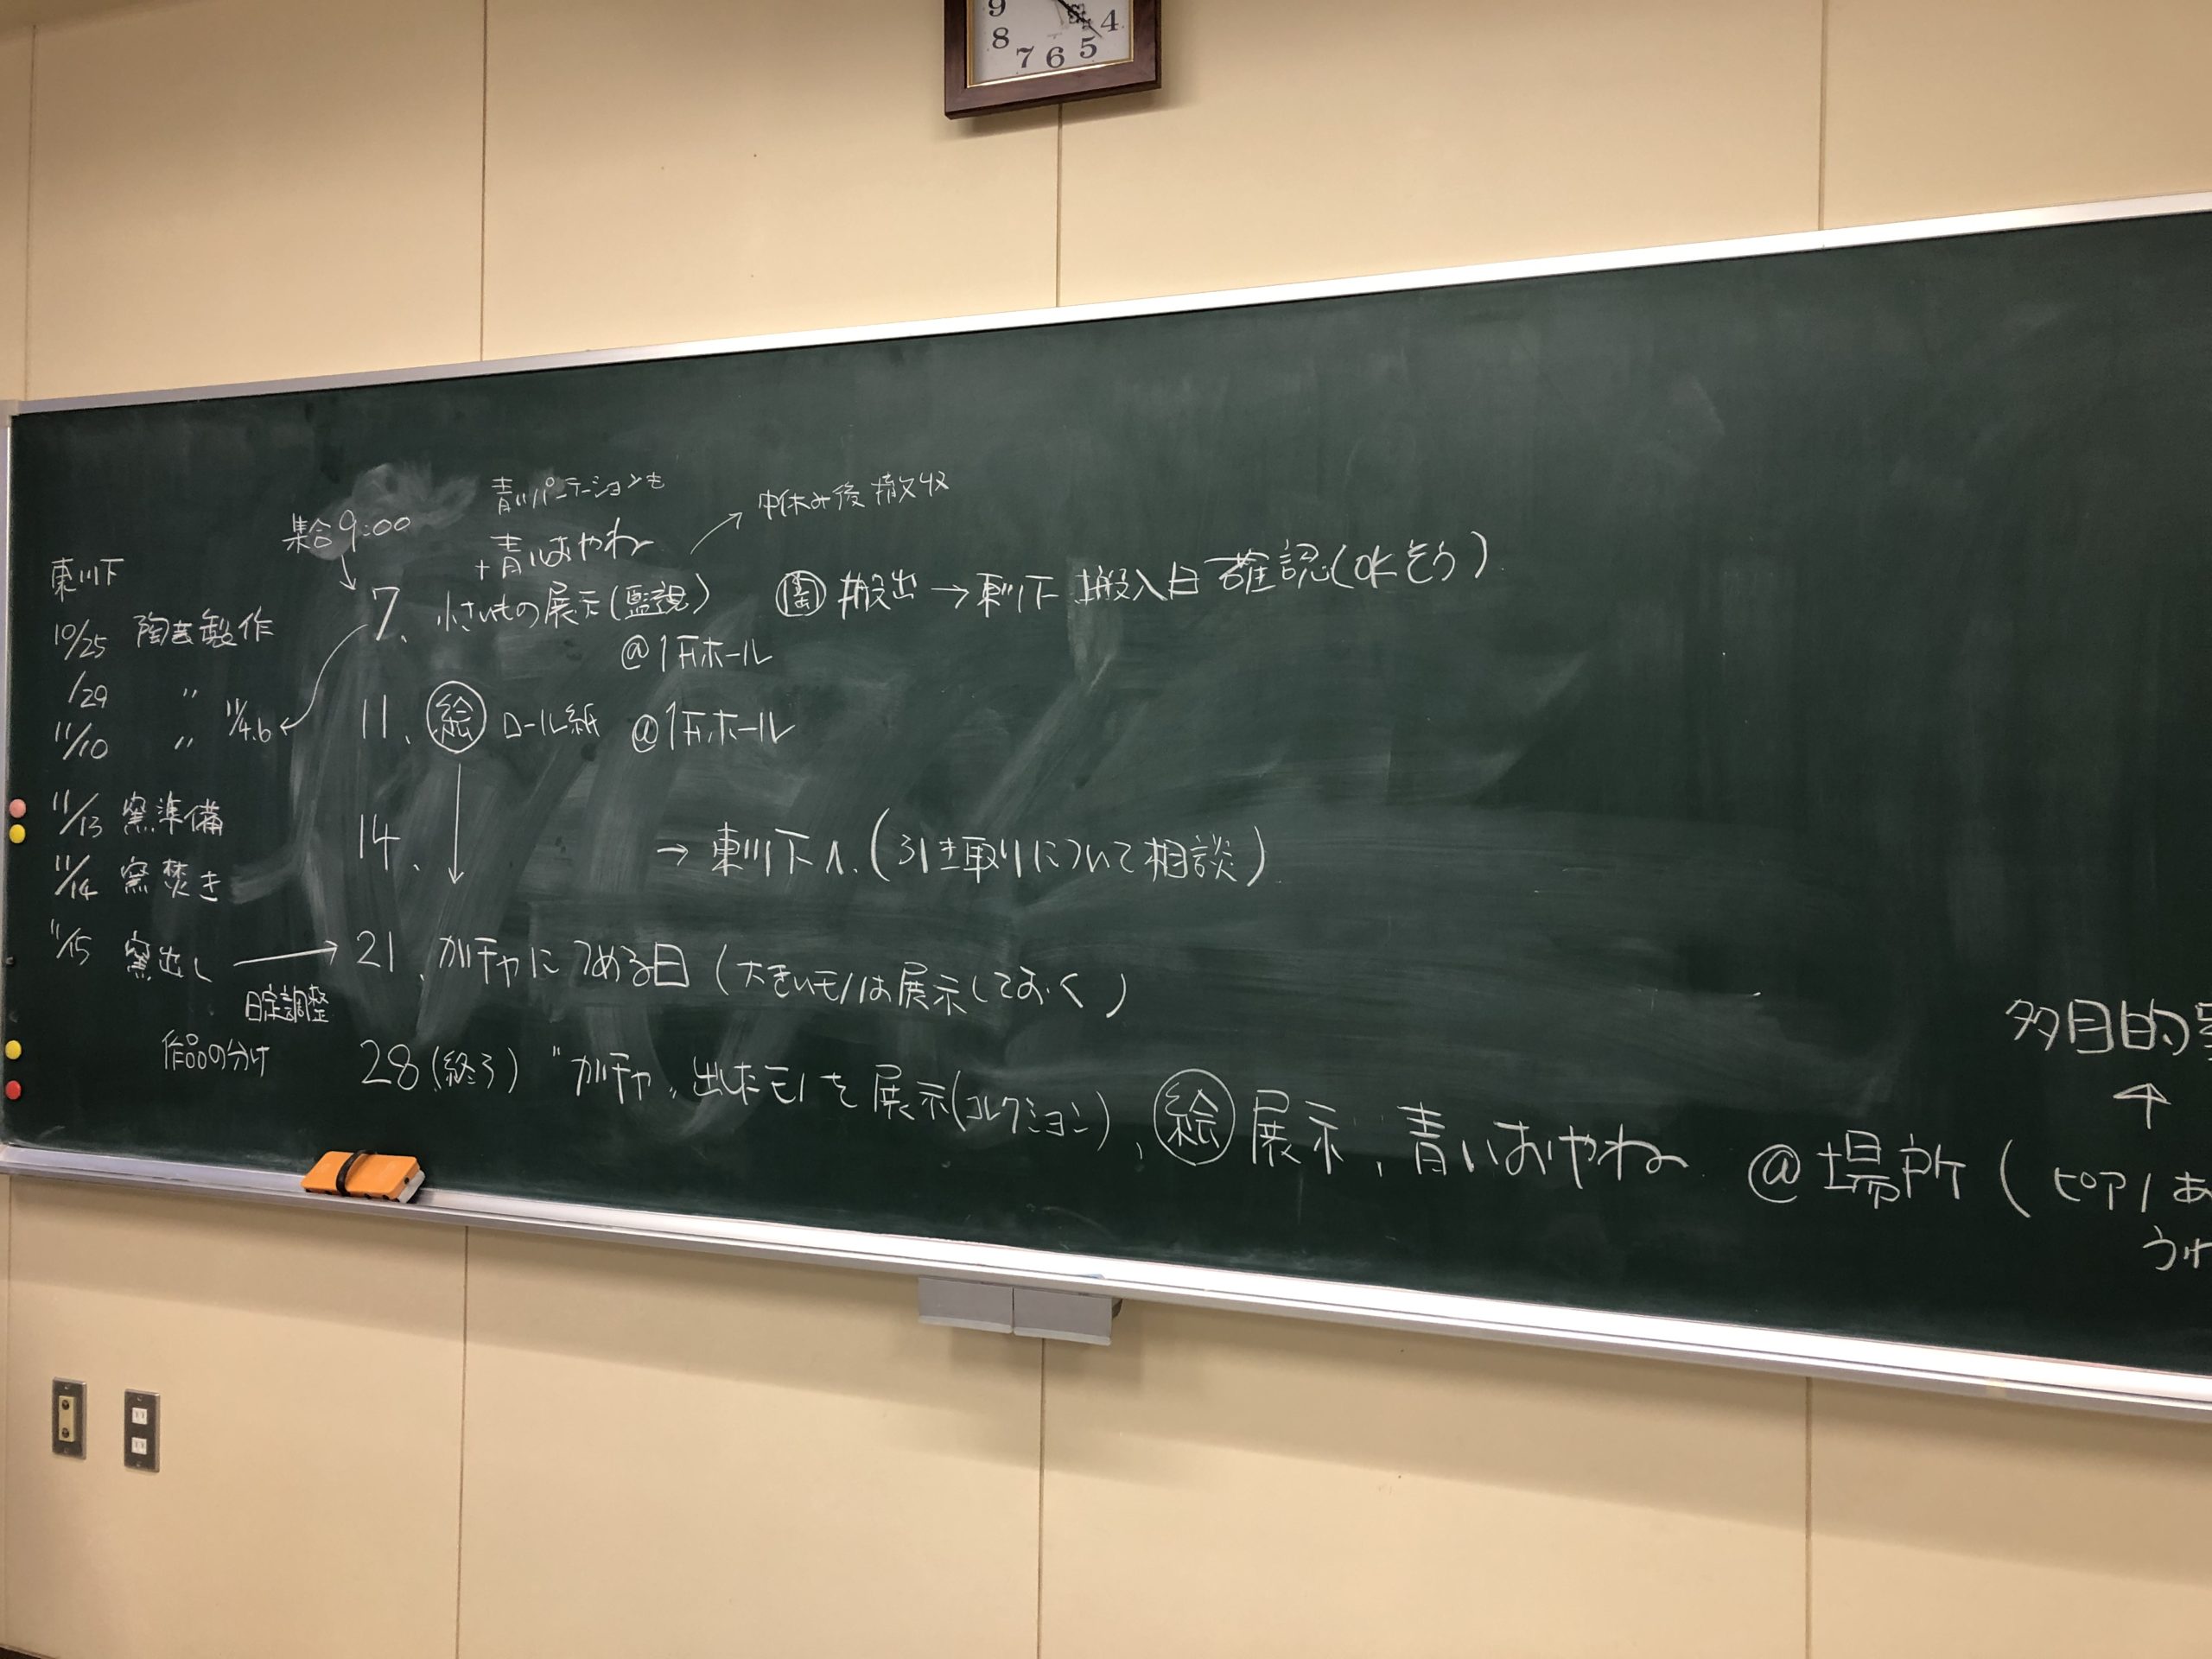 9 8 7 6 5 4
東川下
10/25 陶芸製作
/29 〃
11/10 〃
11/13 窯準備
11/14 窯焚き
11/15 窯出し →
日定調整
作品の分け
集合 9:00
↓
青いパーテーションも
+青いおやね
→ 中休み後 撤収
7. 小さいもの展示(監視)
@1Fホール
搬出 → 東川下 搬入日 確認(OKそう)
11/4.6 ←
11. 絵 ロール紙 @1Fホール
↓
14. → 東川下へ.(引き取りについて相談)
21. ガチャにつめる日(大きいモノは展示しておく)
28(終了) "ガチャ"出したモノを展示(コレクション), 絵 展示, 青いおやね @場所(ピアノあ
多目的
↑